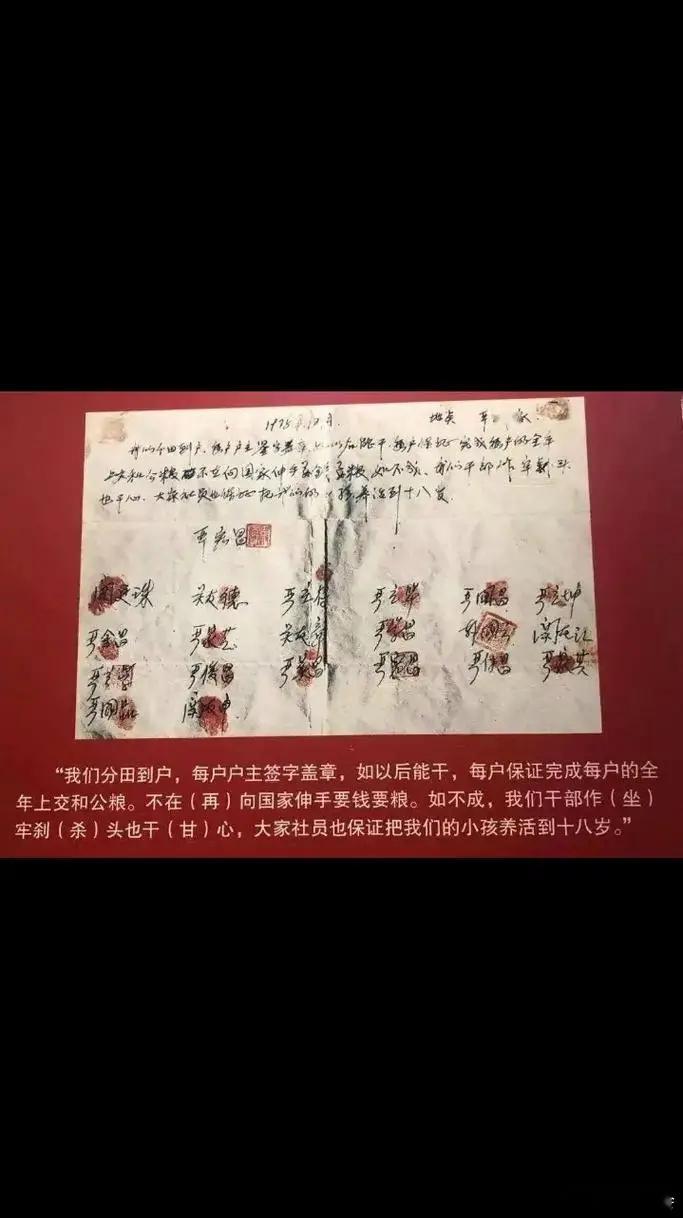 1978.12月 地点 严 家
我们分田到户,每户户主签字盖章,如以后能干,每户保证完成每户的全年
上交和公粮 不在向国家伸手要钱要粮,如不成,我们干部作牢刹头
也干心,大家社员也保证把我们的小孩养活到十八岁.
严宏昌
关廷珠 关友德 严立符 严立华 严国昌 严立坤
严金昌 严家芝 关友章 严学昌 韩国云 关友江
严立学 严俊昌 严美昌 严宏昌 严付昌 严家其
严国品 关友申
“我们分田到户,每户户主签字盖章,如以后能干,每户保证完成每户的全
年上交和公粮。不在(再)向国家伸手要钱要粮。如不成,我们干部作(坐)
牢刹(杀)头也干(甘)心,大家社员也保证把我们的小孩养活到十八岁。”